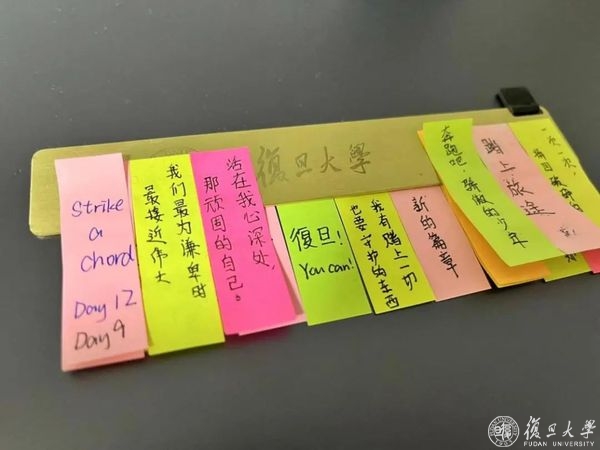 復旦大學
Strike
a
chord
Day 12
Day 9
我们最为谦卑时
最接近伟大
活在我心深处,
那顽固的自己。
復旦!
You can!
我有上一切
也要守护的东西
新的篇章
奔跑吧,骄傲的少年
踏上旅途
復旦大學
FUDAN UNIVERSITY